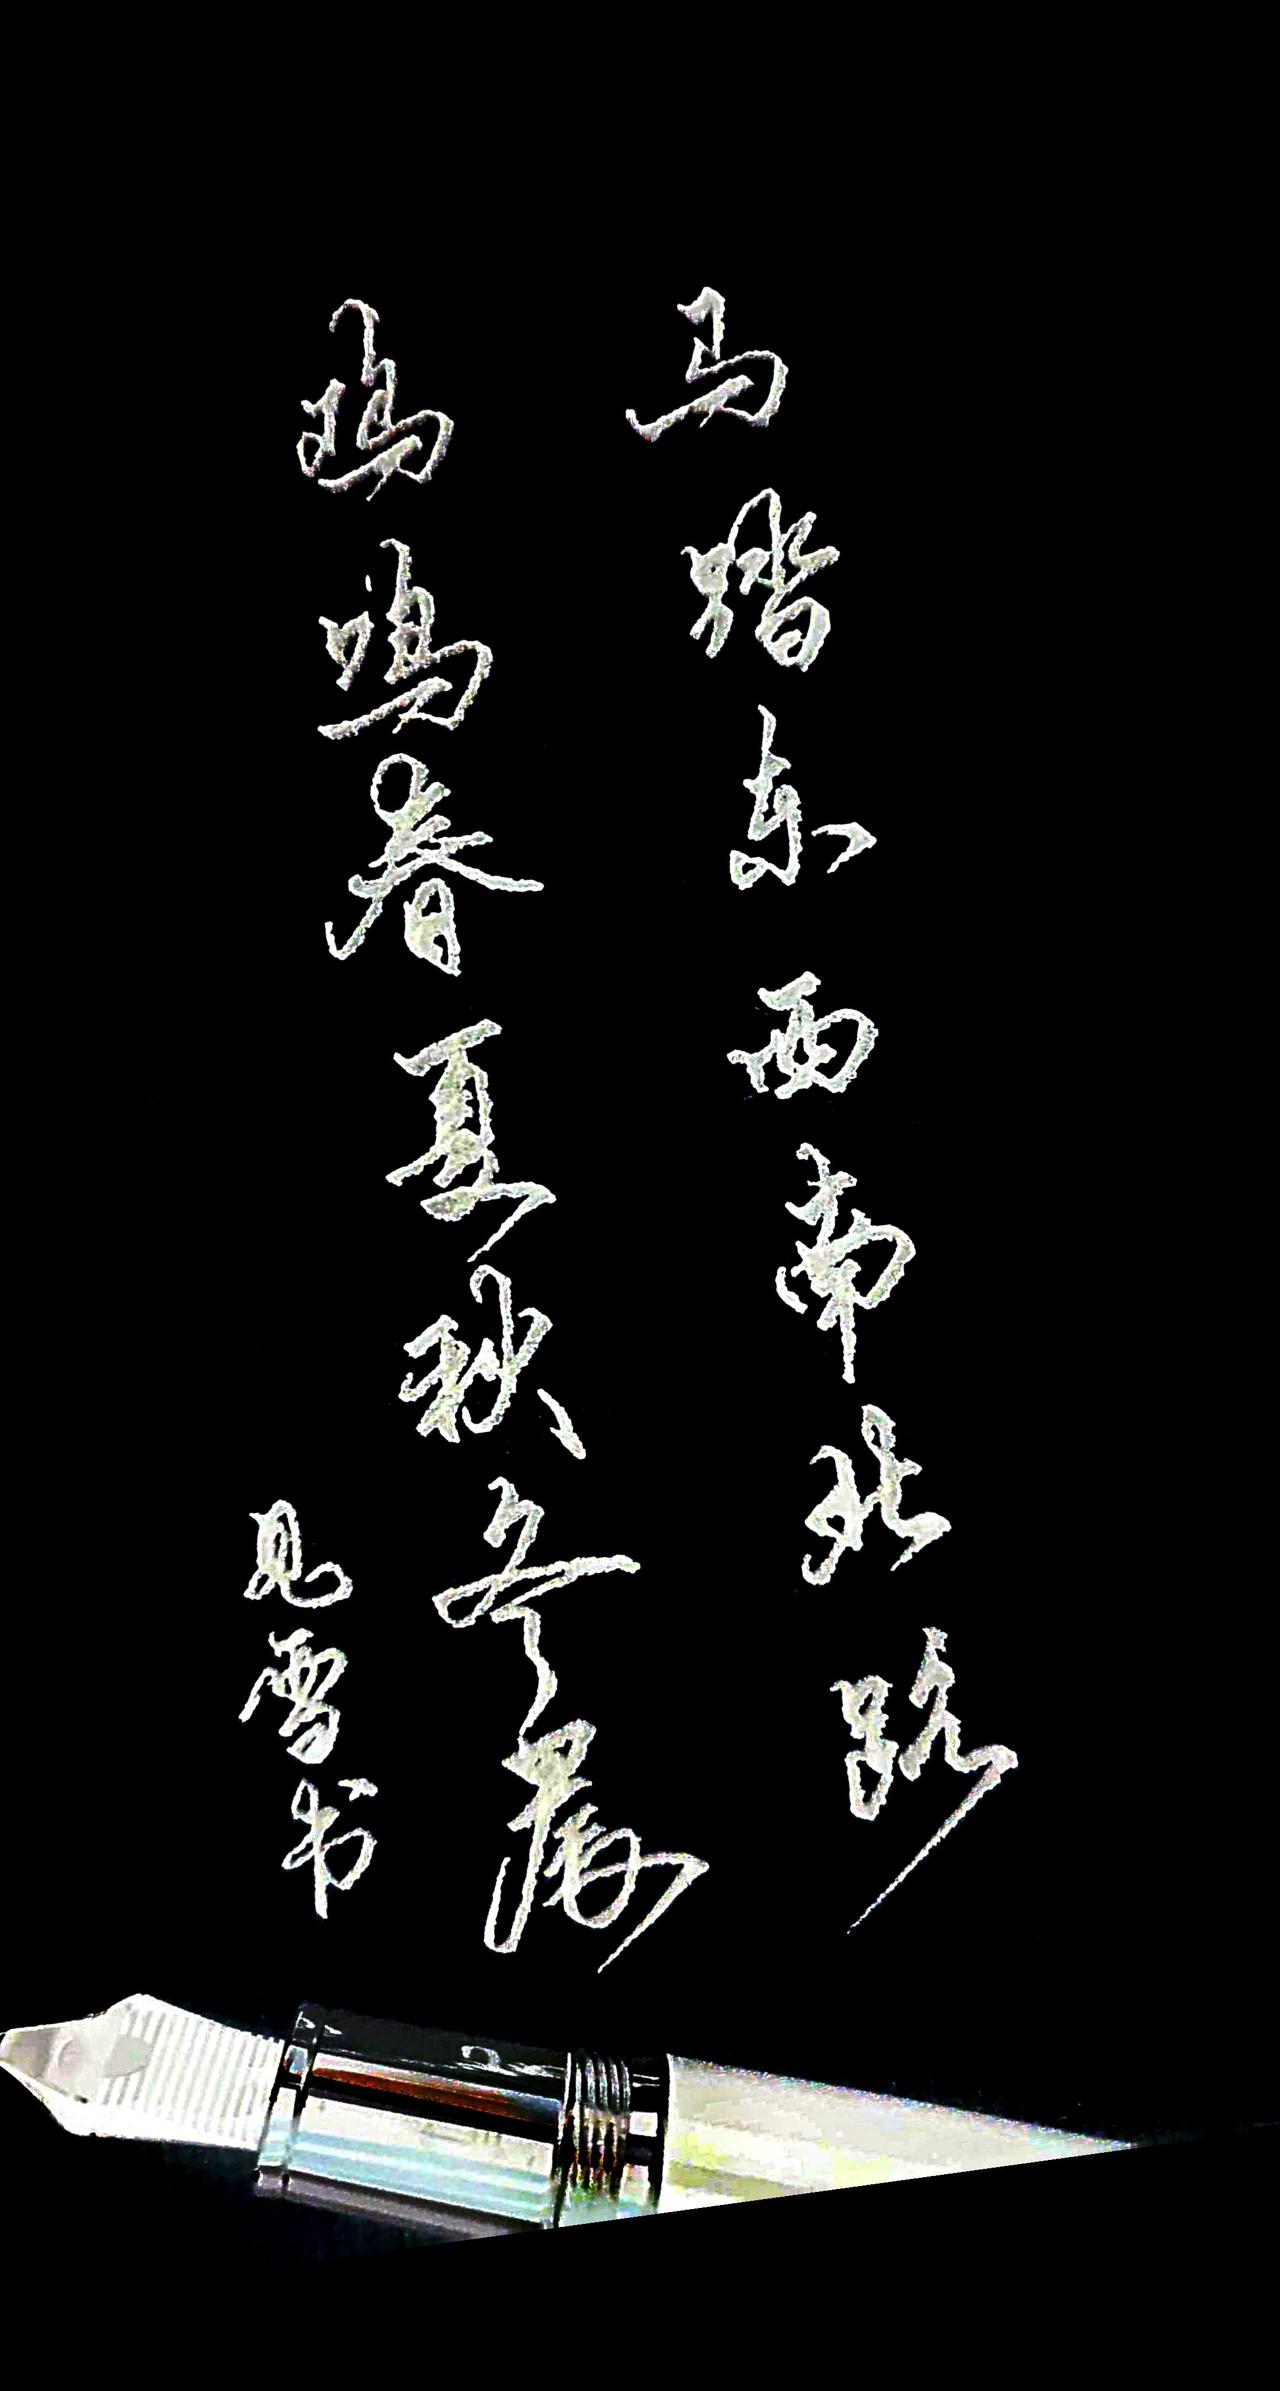 马踏东西南北路
鸡鸣春夏秋冬晨
见雪书